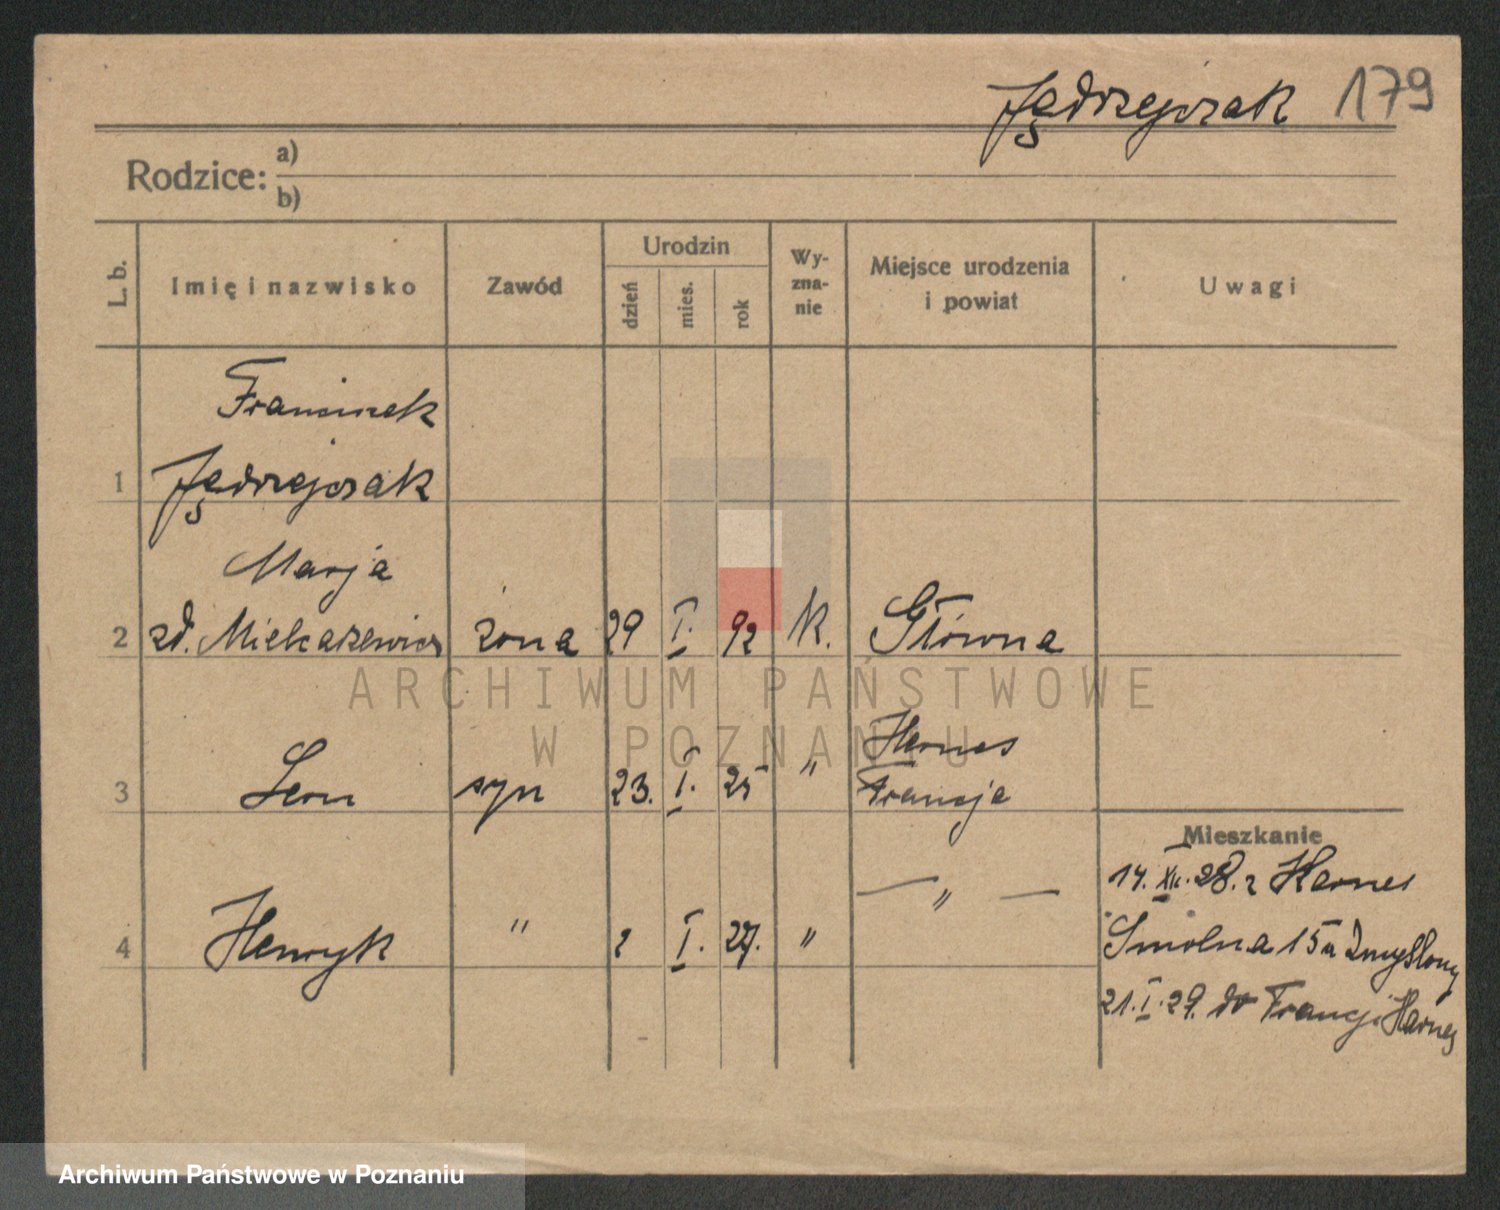 Jędrzejczak 179
Rodzice: a)
b)
L. b. Imię i nazwisko Zawód Urodzin dzień mies. rok Wyznanie Miejsce urodzenia i powiat Uwagi
Franciszek
1 Jędrzejczak
Marja
2 zd. Mielcarzewicz żona 29 I. 92 K. Główna
Harnes
3 Leon syn 23. I. 25 " Francja
Mieszkanie
14. XII. 28. z Harnes
4 Henryk " 2 I. 27. " — " —
Smolna 15a Zmyślony
21. I. 29. do Francji Harnes
ARCHIWUM PAŃSTWOWE
W POZNANIU
Archiwum Państwowe w Poznaniu